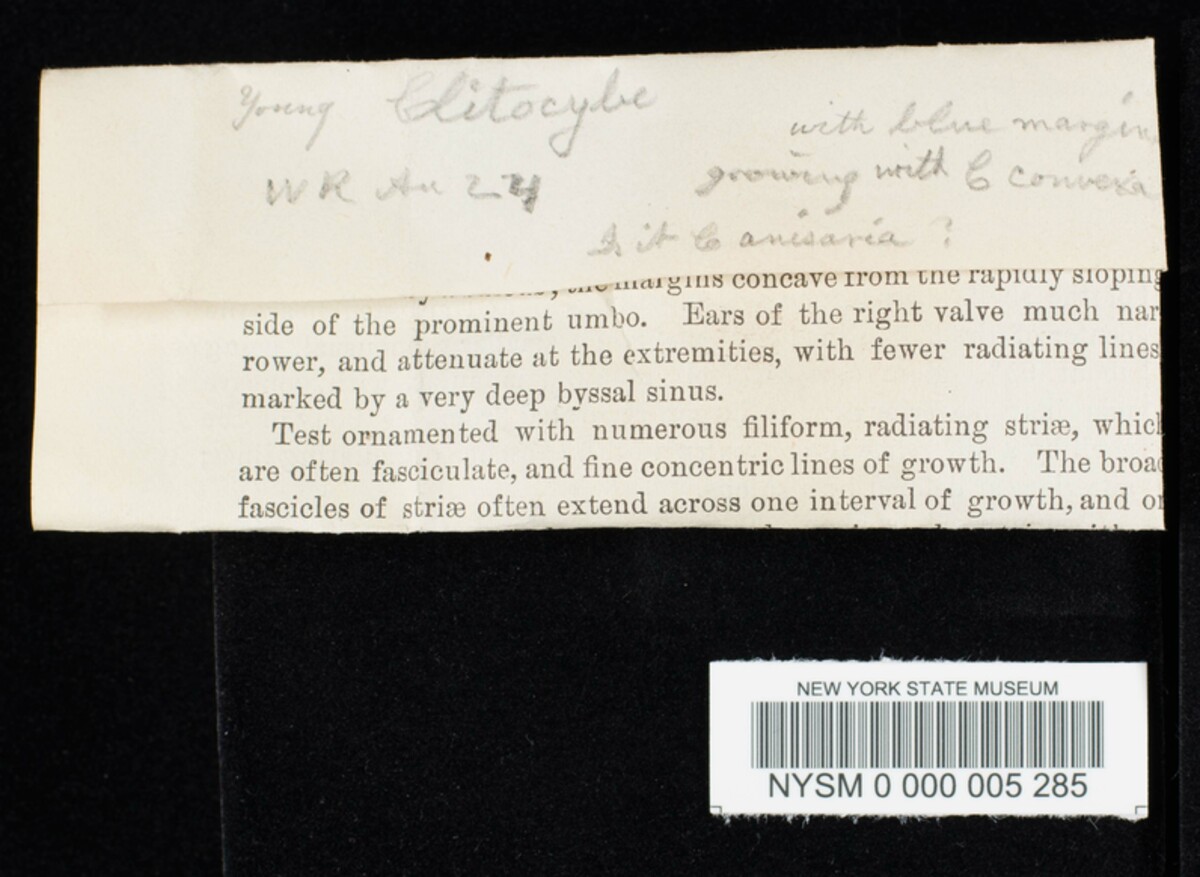 Young Clitocybe
with blue margin
WR Au 24
growing with C convexa
Is it C anisaria?
the margins concave from the rapidly sloping
side of the prominent umbo. Ears of the right valve much nar
rower, and attenuate at the extremities, with fewer radiating lines
marked by a very deep byssal sinus.
Test ornamented with numerous filiform, radiating striæ, which
are often fasciculate, and fine concentric lines of growth. The broad
fascicles of striæ often extend across one interval of growth, and on
NEW YORK STATE MUSEUM
NYSM 0 000 005 285